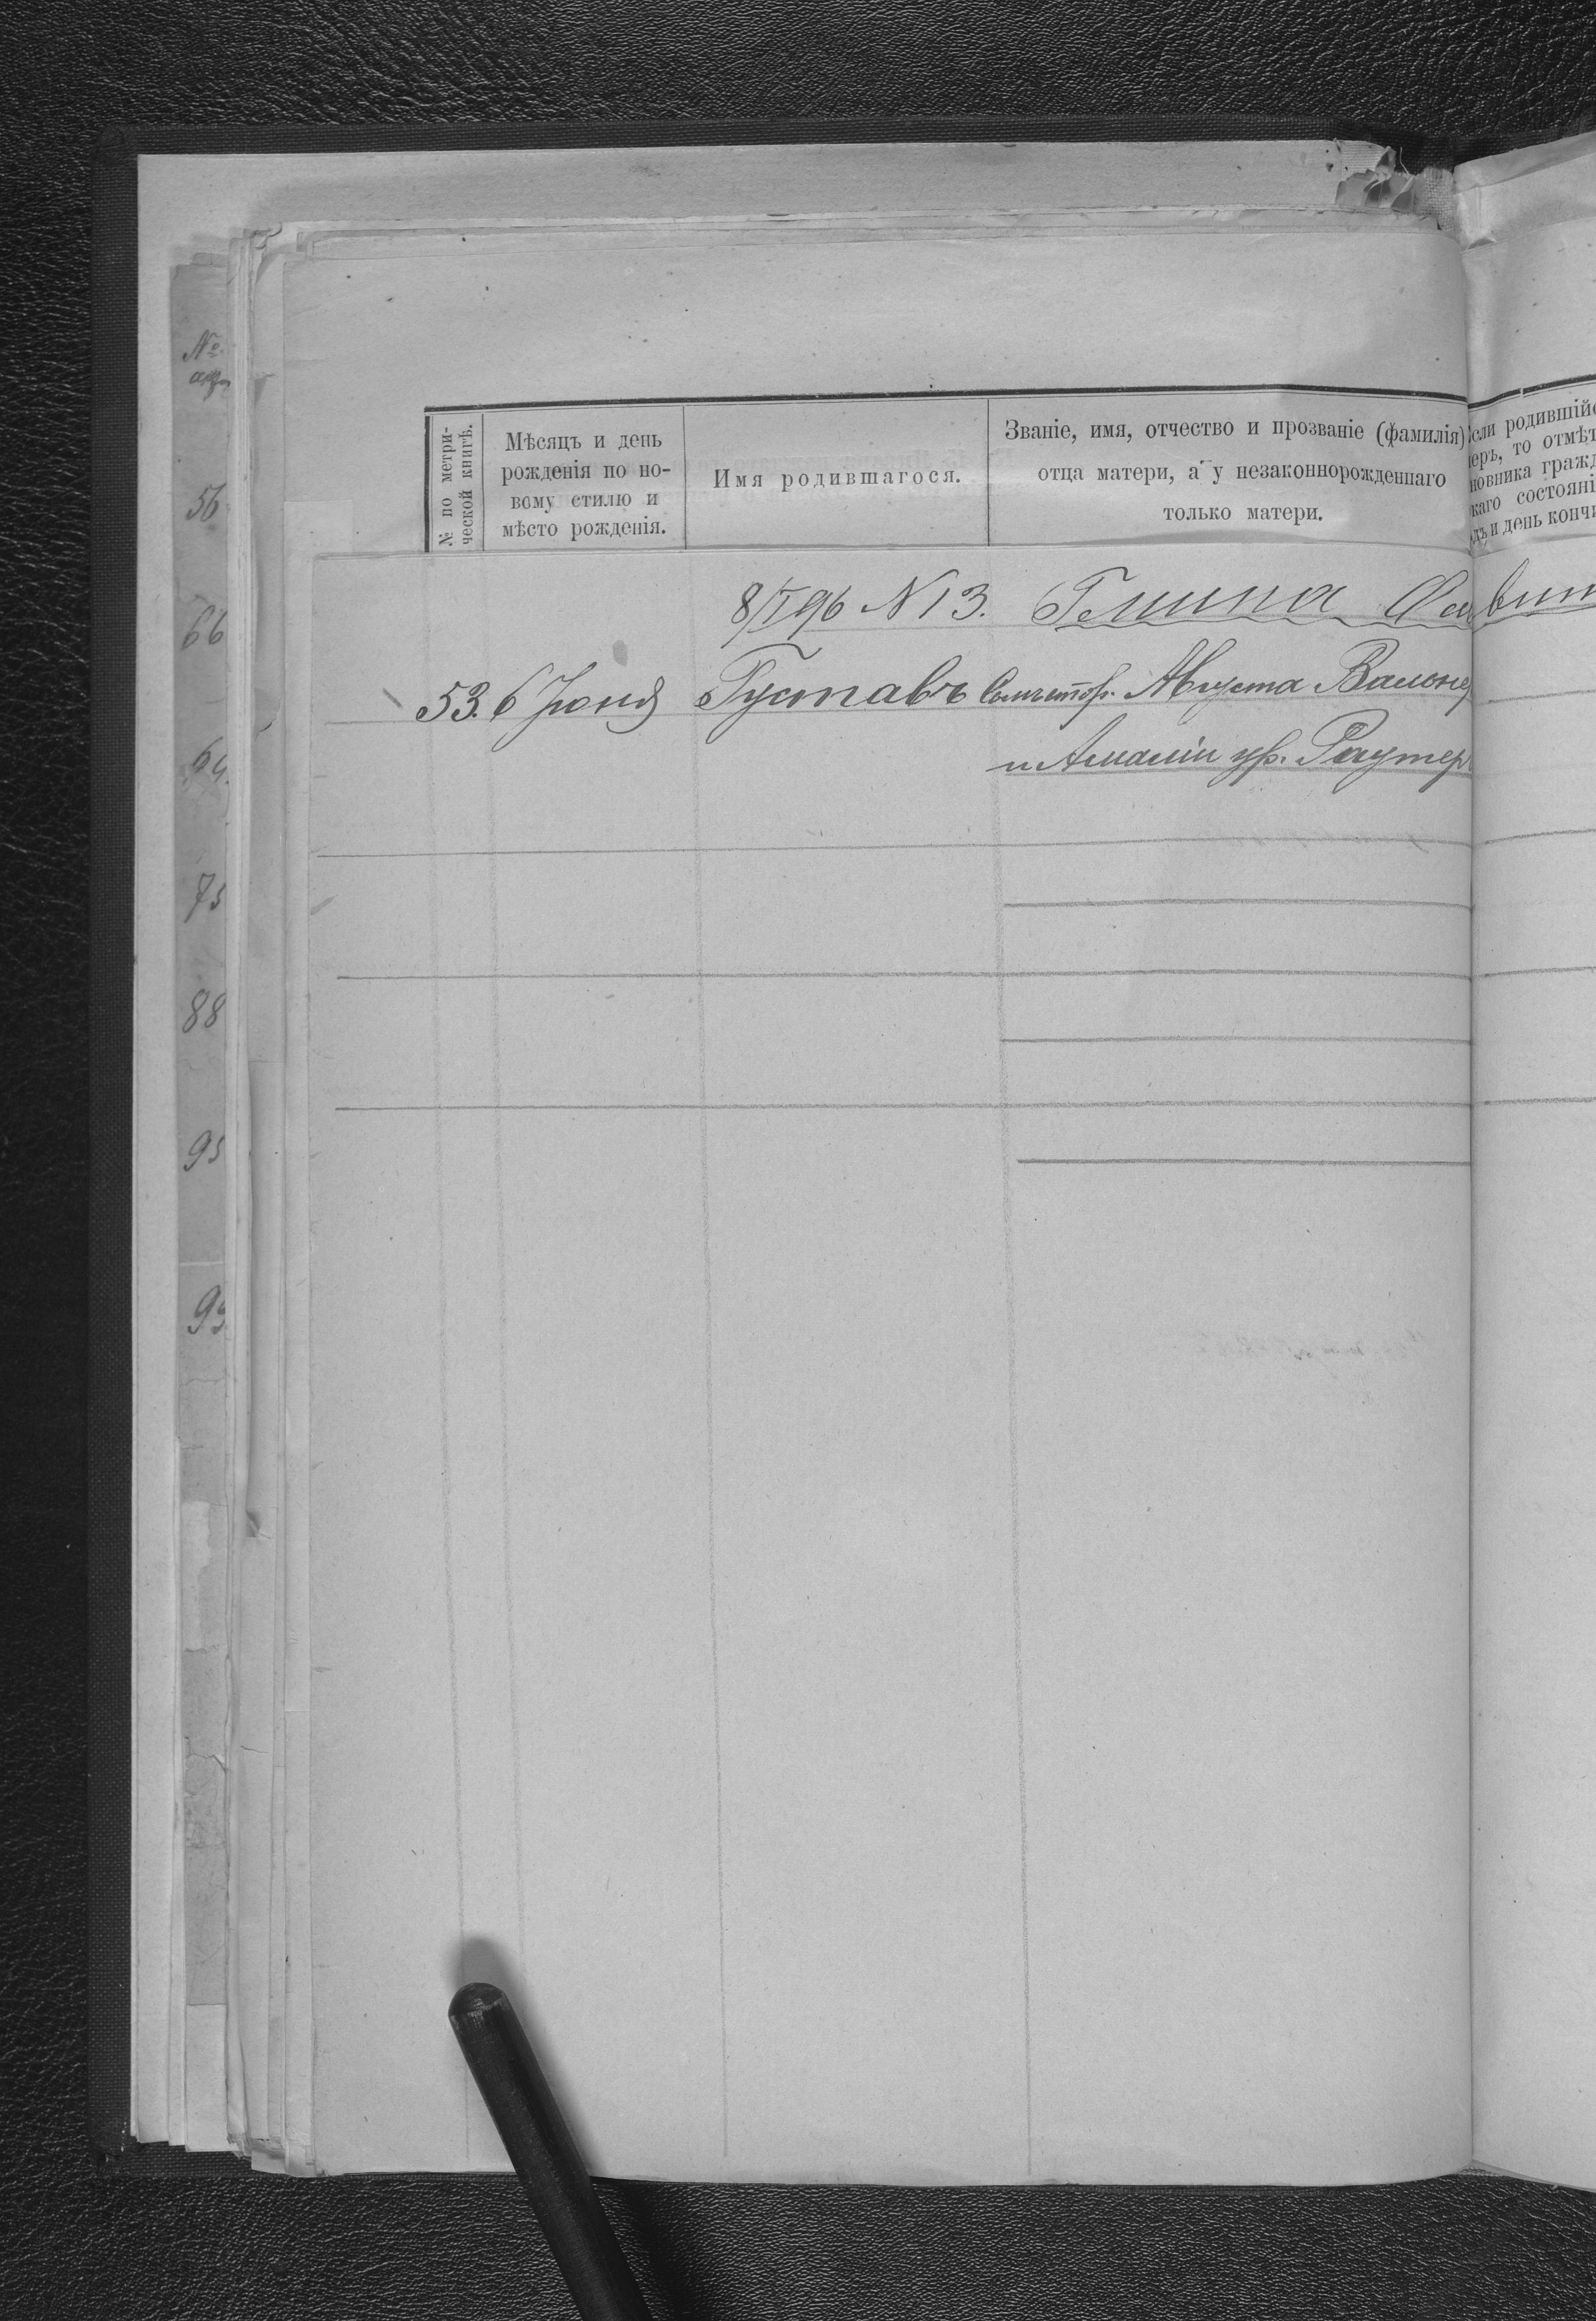 №
56
66
64.
75
88
95
99
№ по метри-
ческой книгѣ.
Мѣсяцъ и день
рожденія по но-
вому стилю и
мѣсто рожденія.
Имя родившагося.
Званіе, имя, отчество и прозваніе (фамилія)
отца матери, а у незаконнорожденнаго
только матери.
если родившійс
еръ, то отмѣт
новника гражд
каго состояні
дъ и день кончи
8/I 96 N 13. Гмина
53. 6 Іюня Густавъ Августа
и Амаліи ур. Раутер